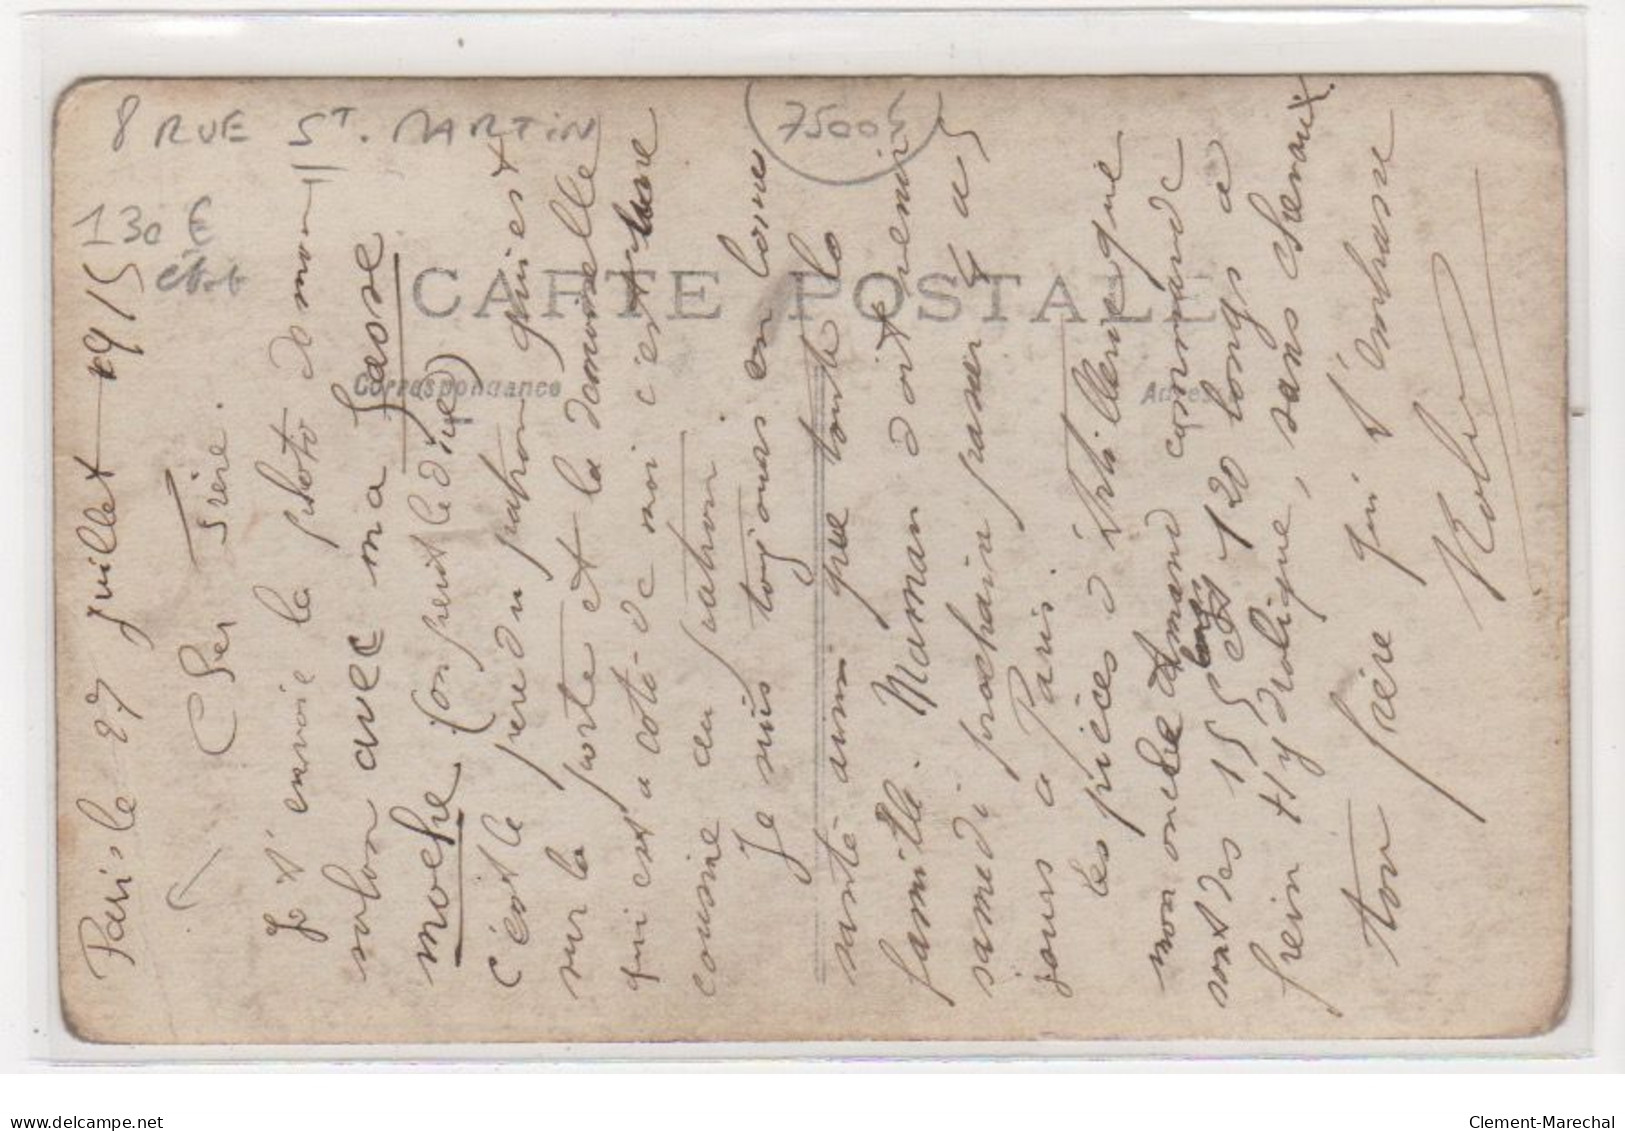 8 RUE ST. MARTIN
75004
130 €
CARTE POSTALE
Correspondance
Adresse
Paris le 27 juillet 1915
Cher Frère.
Je t'envoie la photo de mon
salon avec ma Gueose
moche (on peut le dire)
C'est le père du patron qui est
sur la porte et la demoiselle
qui est a coté de moi c'est une
cousine au patron.
Je suis toujours en bonne
santé ainsi que toute la
famille. Maman doit venir
samedi prochain passer 4 a 5
jours a Paris.
Les pièces d'Artillerie que
mon oncle Amand commande
sont des 155 long et 120 longs a
frein Hydrolique, sans chevaux.
ton frère qui t'embrasse
Robert
delcampe.net
Clement-Marechal